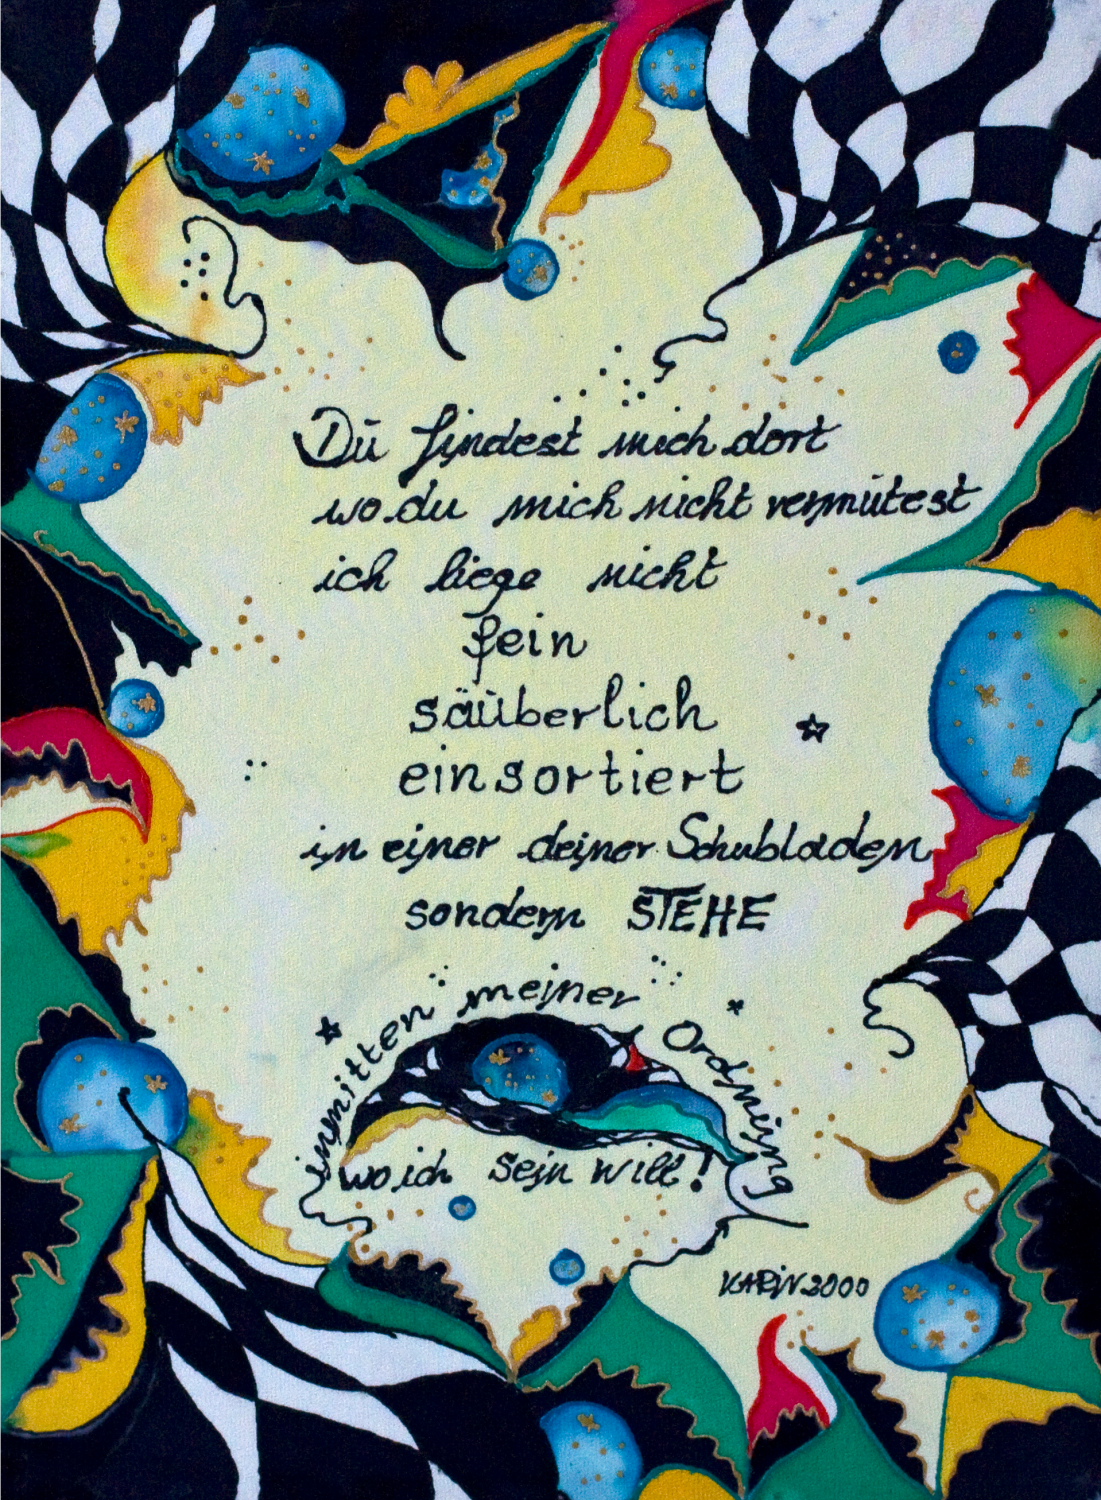 Dū findest mich dort
wo du mich nicht vermūtest
ich liege nicht
fein
säūberlich
einsortiert
in einer deiner Schubladen
sondern STEHE
inmitten meiner Ordnūng
wo ich sein will!
KARIN 2000